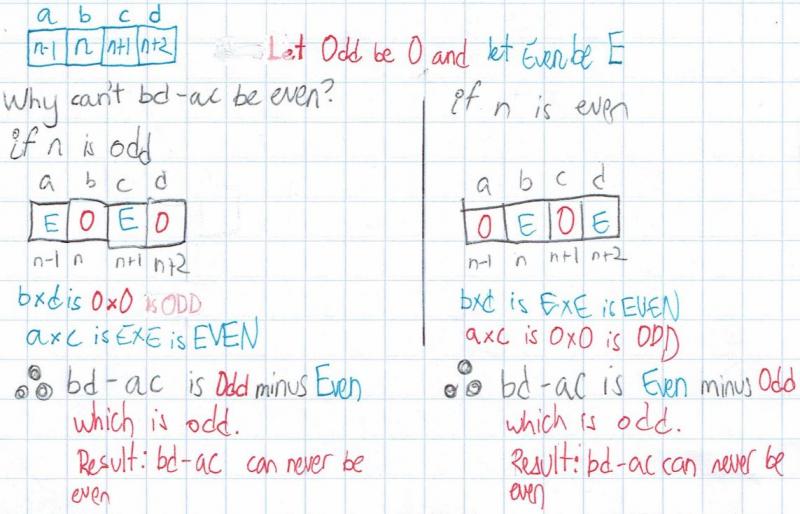 a b c d
n-1 n n+1 n+2
Let Odd be O and let Even be E
Why can't bd-ac be even?
if n is odd
a b c d
E O E O
n-1 n n+1 n+2
bxd is OxO is ODD
axc is ExE is EVEN
∴ bd-ac is Odd minus Even
which is odd.
Result: bd-ac can never be
even
if n is even
a b c d
O E O E
n-1 n n+1 n+2
bxd is ExE is EVEN
axc is OxO is ODD
∴ bd-ac is Even minus Odd
which is odd.
Result: bd-ac can never be
even